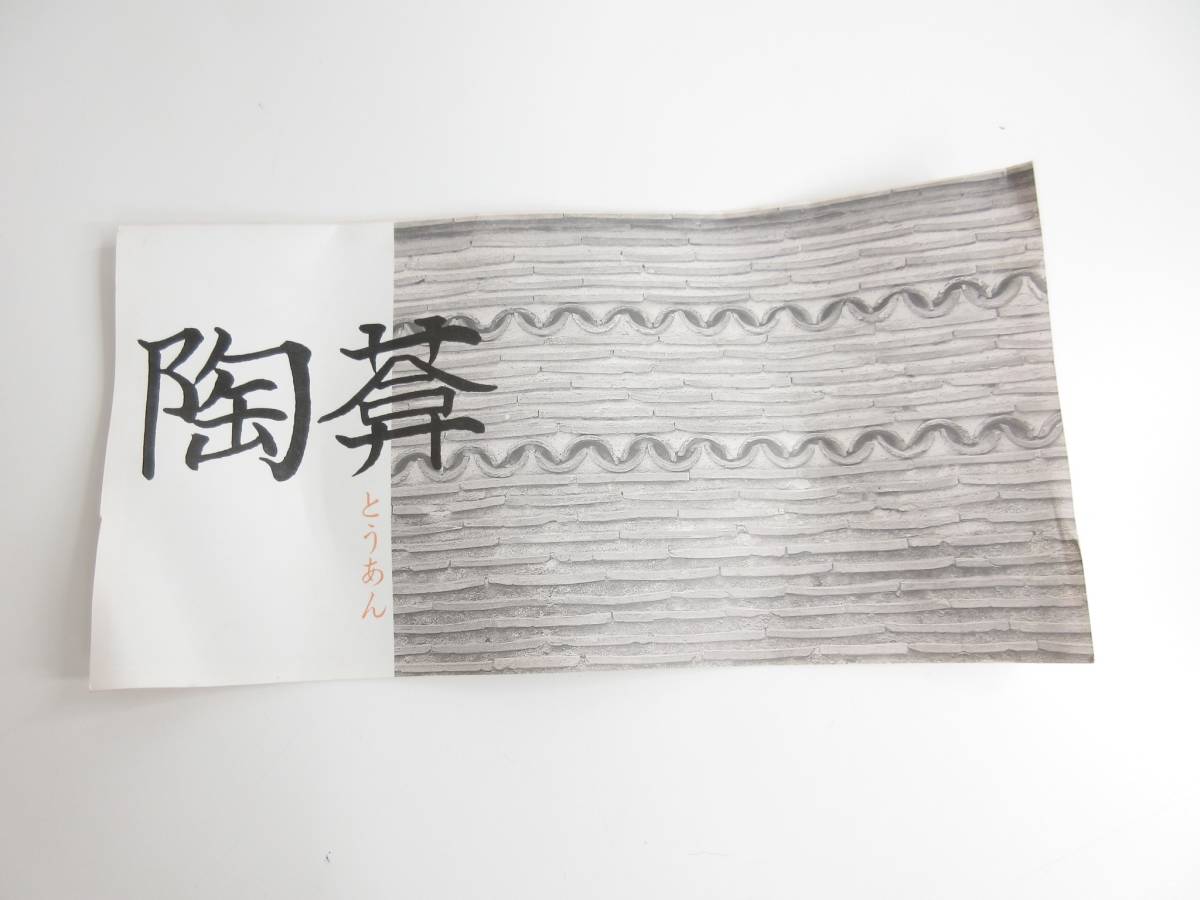 陶葊
とうあん